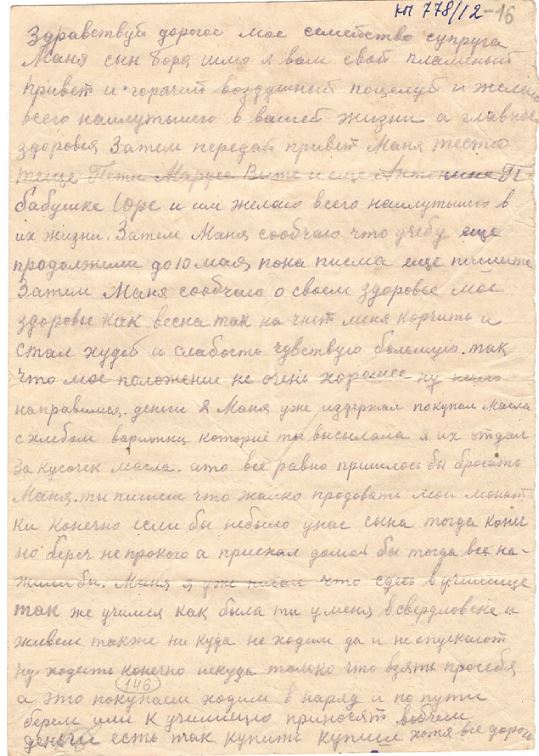 КП 778/12-16
Здравствуй дорогое мое семейство супруга
Маня сын Боря шлю я вам свой пламеный
привет и горячий воздушный поцелуй и желаю
всего наилутьшего в вашей жизни а главное
здоровья Затем передай привет Маня тестю
теще Пети Марусе Вите и еще Антонине П
бабушке Юре и им желаю всего наилутьшего в
их жизни. Затем Маня сообчаю что учебу еще
продолжили до 10 мая пока писма еще пишите
Затем Маня сообчаю о своем здоровье мое
здоровье как весна так на чнет меня корчить и
стал худей и слабость чувствую большую. так
что мое положение не очень хорошее ну
направимся. деньги я Маня уже издержал покупал масла
с хлебом которые ты высылала я их отдал
за кусочек масла. ато все равно пришлось бы бросать
Маня. ты пишеш что жалко продовать мои монат
ки конечно если бы небыло унас сына тогда коне
но береч не прокого а приехал домой бы тогда все на-
жили бы. Маня я уже писал что сдесь в училище
так же учимся как была ты у меня в свердловске и
живем также ни куда не ходим да и не спускают
ну ходить конечно некуда только что взять просебя
а это покупаем ходим в наряд и по пути
146
берем или к училищю приносят вобчем
деньги есть так купить купиш хотя все дорого